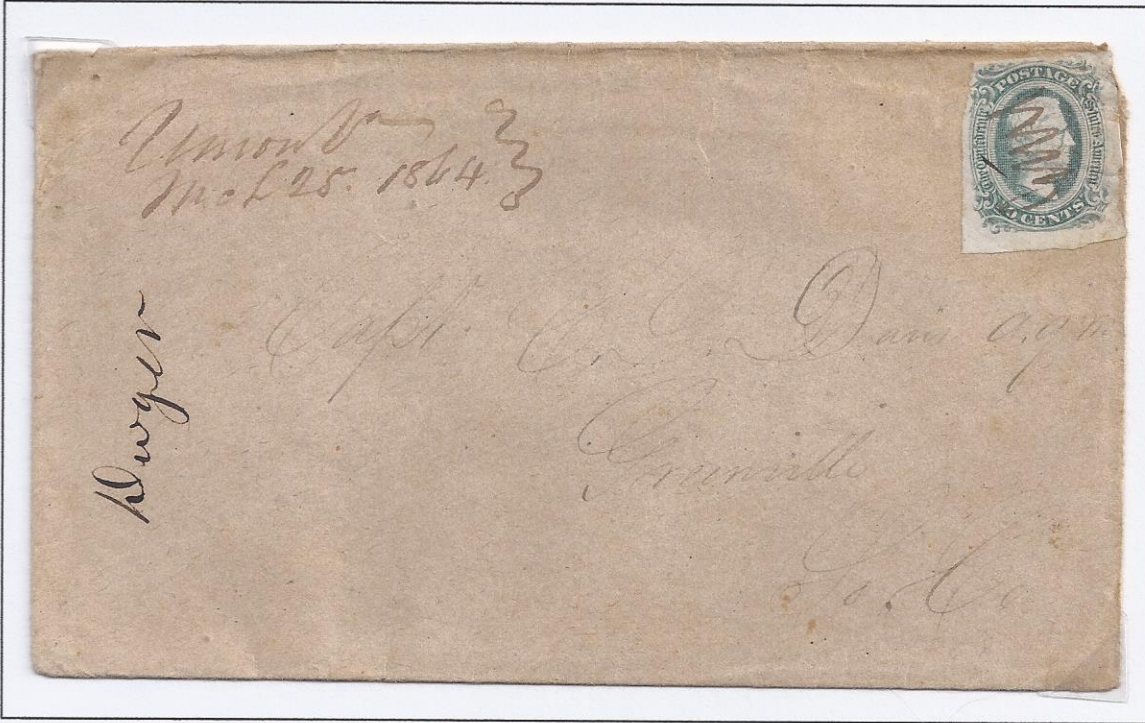 Union Va
Mch 25. 1864.
POSTAGE
The Confederate States America
CENTS
Capt. Davis a.q.m.
Greenville
So. Ca
Dwyer